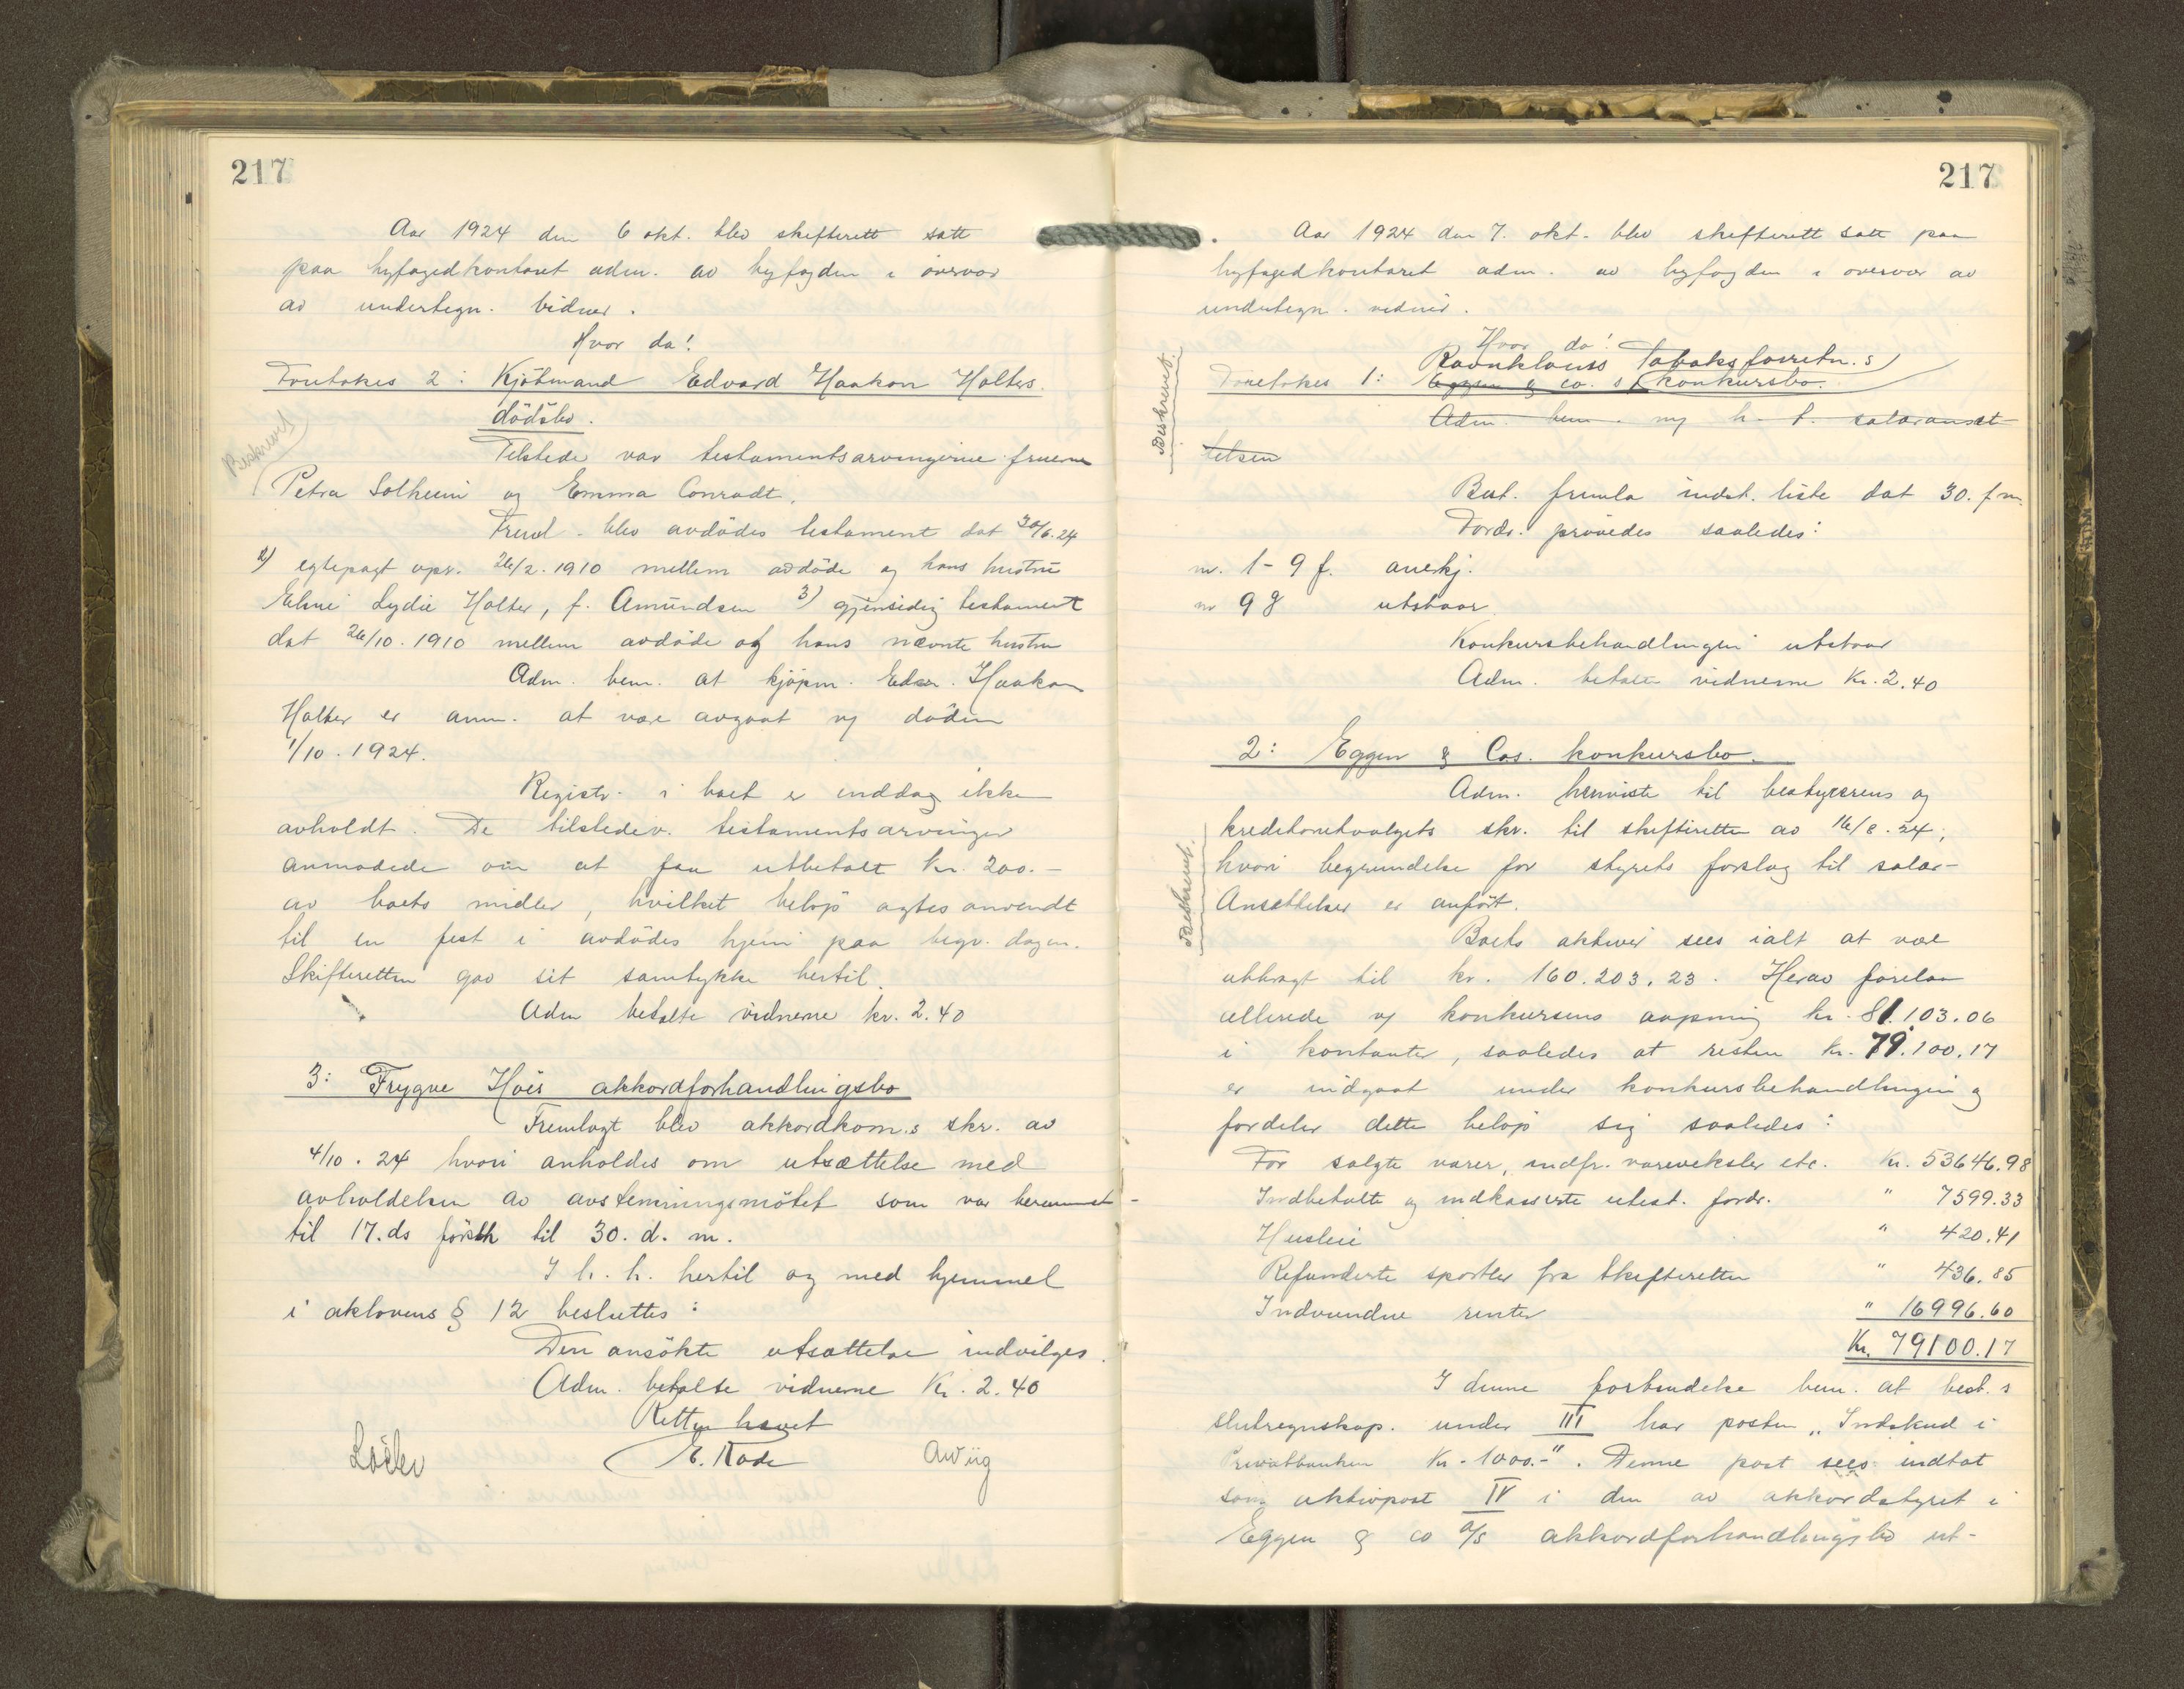 217
Aar 1924 den 6 okt. blev skifterett satt
paa byfogedkontoret adm. av byfogden i overvær
av undertegn. vidner.
Hvor da!
Foretokes 2: Kjötmand Edvard Haakon Holters
dödsbo.
Beskrevet
Tilstede var testamentsarvingerne fruerne
Petra Solheim og Emma Conradt.
Freml. blev avdödes testament dat 30/6.24
2) egtepagt opr. 26/2.1910 mellem avdöde og hans hustru
Lydie Holter, f. Amundsen 3) gjensidig testament
dat 26/10.1910 mellem avdöde og hans nævnte hustru
Adm. bem. at kjöpm. Edv. Haakon
Holter er anm. at være avgaat v/ döden
1/10.1924.
Registr. i boet er inddag ikke
avholdt. De tilstedev. testamentsarvinger
anmodede om at faa utbetalt kr. 200.-
av boets midler, hvilket belöp agtes anvendt
til en fest i avdödes hjem paa begr. dagen.
Skifteretten gav sit samtykke hertil.
Adm betalte vidnerne kr. 2.40
3: Trygve Hoës akkordforhandlingsbo
Fremlagt blev akkordkom.s skr. av
4/10.24 hvori anholdes om utsættelse med
avholdelsen av avstemningsmötet som var berammet
til 17.ds först til 30. d. m.
I h. h. hertil og med hjemmel
i aklovens § 12 besluttes:
Den ansökte utsættelse indvilges.
Adm. betalte vidnerne Kr. 2.40
Retten hævet
E. Rode
AWiig
217
Aar 1924 den 7. okt. blev skifterett satt paa
byfogedkontoret adm. av byfogden i overvær av
undertegn. vidner.
Hvor da!
Ravnklous Tobaksforretn.s
Foretokes 1: Eggen & co. s konkursbo.
Beskrevet.
Adm. bem. v/ h. t. salæransæt
telsen
Best. fremla indst. liste dat 30. f.m.
Fordr. prövedes saaledes:
nr. 1-9 f. anerkj.
nr 9 g utstaar
Konkursbehandlingen utstaar
Adm. betalte vidnerne Kr. 2.40
2: Eggen & Cos. konkursbo.
Adm. henviste til bestyrerens og
kreditorutvalgets skr. til skifteretten av 16/8.24,
hvori begrundelse for styrets forslag til salær-
Beskrevet.
Ansættelser er anfört.
Boets aktiver sees ialt at være
utbragt til kr. 160.203,23. Herav forelaa
allerede v/ konkursens aapning kr. 81.103.06
i kontanter, saaledes at resten kr. 79.100.17
er indgaat under konkursbehandlingen og
fordeler dette belöp sig saaledes:
For solgte varer, indfr. vareveksler etc. Kr. 53646.98
Indbetalte og indkasserte utest. fordr. " 7599.33
Husleie " 420.41
Refunderte sportler fra Skifteretten " 436.85
Indvundne renter " 16996.60
Kr. 79100.17
I denne forbindelse bem. at best.s
slutregnskap. under III har posten „Indskud i
Privatbanken Kr. 1000.-". Denne post sees indtat
som aktivpost IV i den av akkordstyret i
Eggen & co A/S akkordforhandlingsbo ut-